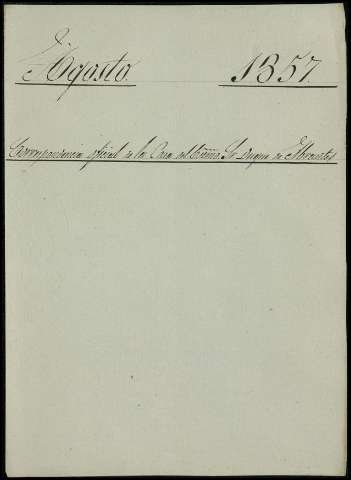 Agosto. 1857.
Correspondencia oficial de la Casa del Excmo. Sr. Duque de Abrantes